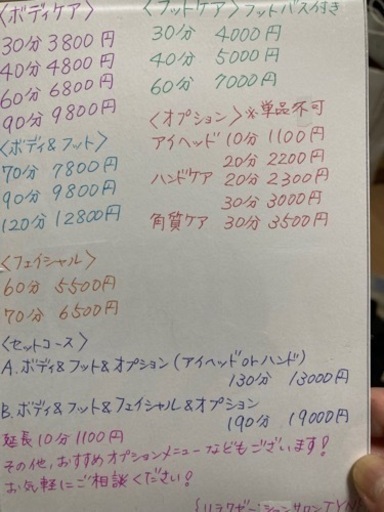 〈ボディケア〉
30分 3800円
40分 4800円
60分 6800円
90分 9800円
〈フットケア〉フットバス付き
30分 4000円
40分 5000円
60分 7000円
〈オプション〉※単品不可
アイヘッド 10分 1100円
20分 2200円
ハンドケア 20分 2300円
30分 3000円
角質ケア 30分 3500円
〈ボディ&フット〉
70分 7800円
90分 9800円
120分 12800円
〈フェイシャル〉
60分 5500円
70分 6500円
〈セットコース〉
A.ボディ&フット&オプション(アイヘッドorハンド)
130分 13000円
B.ボディ&フット&フェイシャル&オプション
190分 19000円
延長10分1100円
その他、おすすめオプションメニューなどもございます!
お気軽にご相談ください!
リラクゼーションサロン